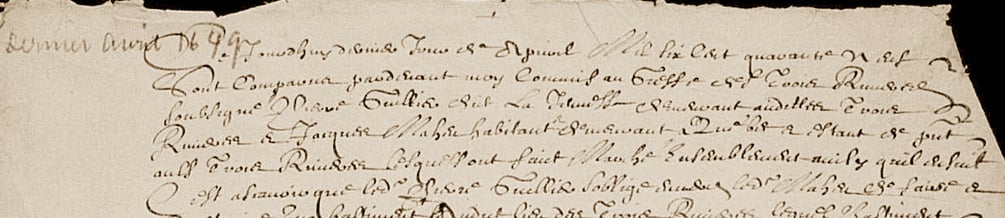 dernier Avril 1649
Ce Jourdhuy dernier Jour de Apvril Mil six Cent quarante neuf
Sont Comparus pardevant moy Commis au Greffe des Trois Rivieres
soubsigne Pierre Guillet dit La Jeunesse demeurant ausdittes Trois
Rivieres & Jacques Maheu habitant demeurant Quebec & estant de pnt
ausd Trois Rivieres lesquels ont faict Marché Ensemblement ainsy quil ensuit
Cest ascavoir que led Pierre Guillet soblige envers led Maheu de faire &
bastiment Trois Rivieres lequel bastiment